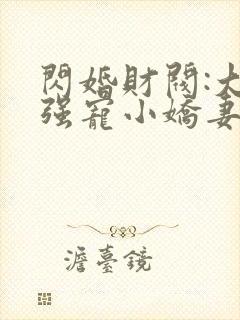 閃婚財閥:大
强寵小嬌妻
澹臺鏡